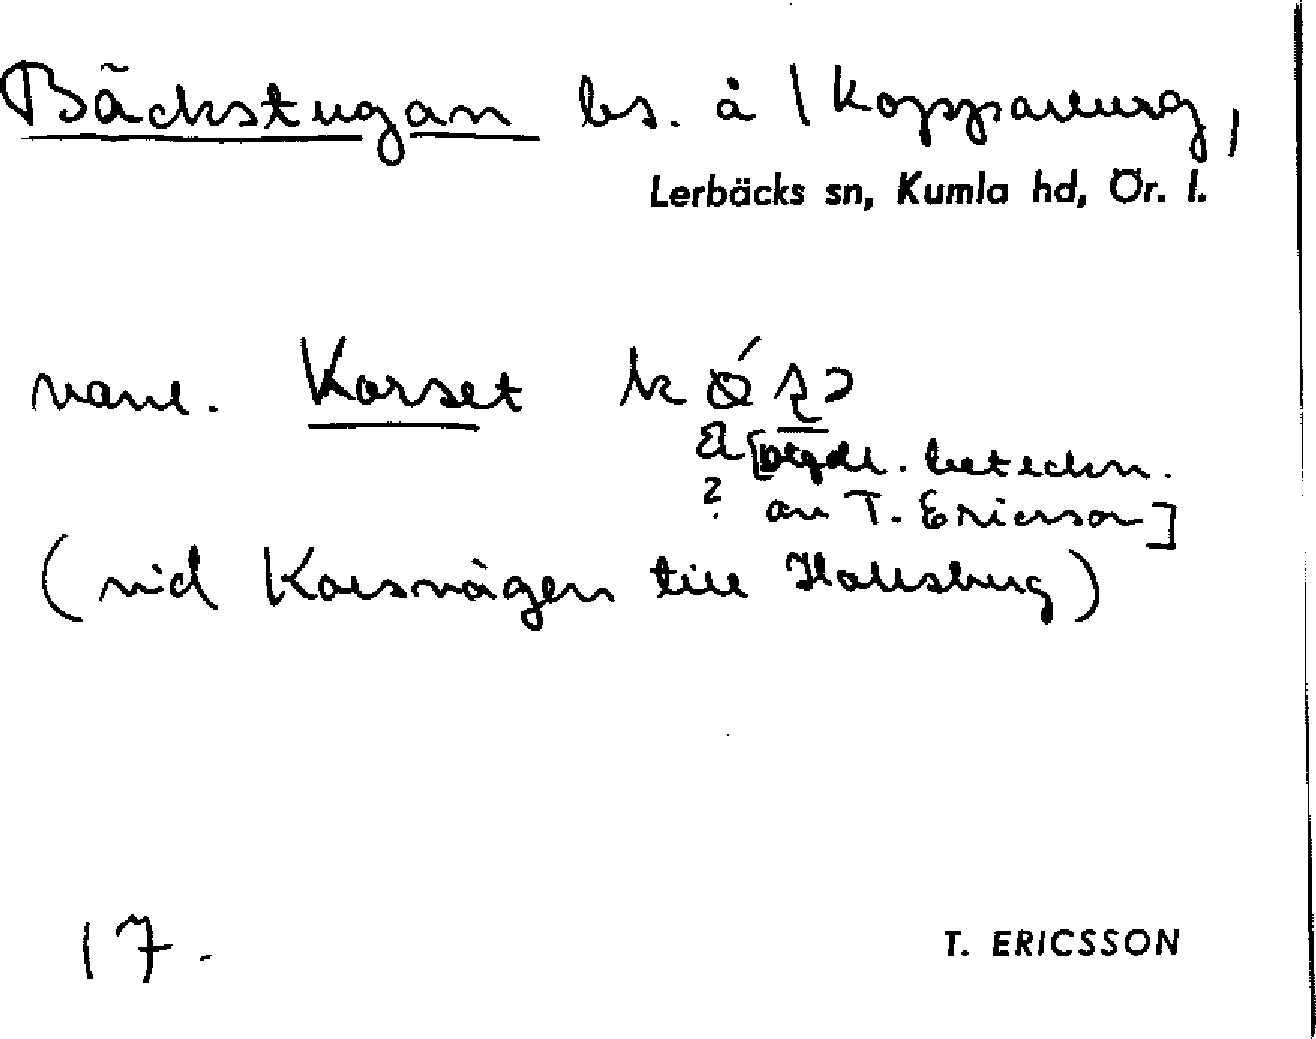 Bäckstugan ls. å 1 Kopparburg,
Lerbäcks sn, Kumla hd, Ör. l.
vanl. Korset
[otydl. beteckn.
? av T. Ericsson]
(vid Korsvägen till Hallsberg)
17.
T. ERICSSON